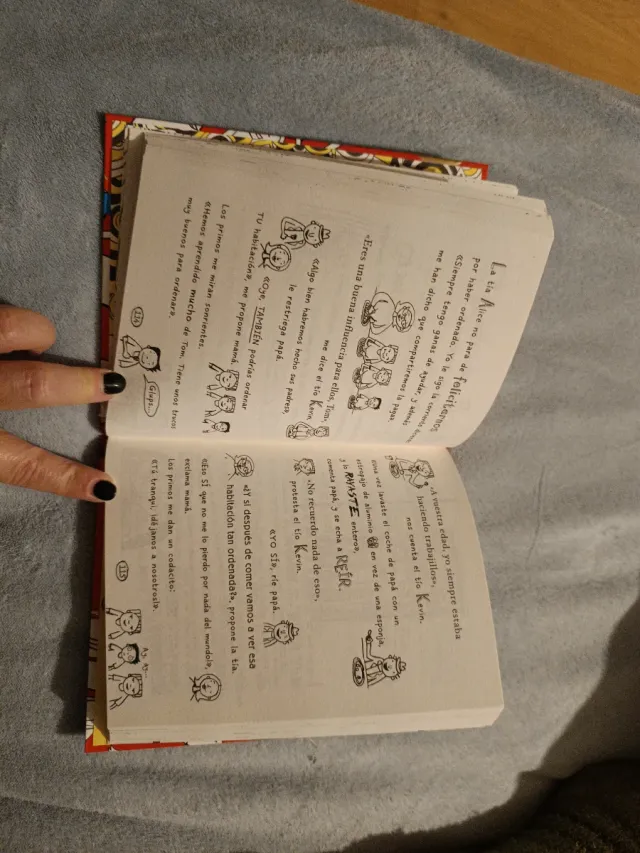 La tía Alice no para de felicitarnos
por haber ordenado. Yo le sigo la corriente.
«Siempre tengo ganas de ayudar, y además
me han dicho que compartiremos la paga.
«Eres una buena influencia para ellos, Tom»,
me dice el tío Kevin.
«Algo bien habremos hecho sus padres»,
le restriega papá.
«Oye, TAMBIÉN podrías ordenar
TU habitación», me propone mamá.
Los primos me miran sonrientes.
«Hemos aprendido mucho de Tom. Tiene unos trucos
muy buenos para ordenar».
Glups...
114
«A vuestra edad, yo siempre estaba
haciendo trabajillos»,
nos cuenta el tío Kevin.
«Una vez lavaste el coche de papá con un
estropajo de aluminio en vez de una esponja,
y lo RAYASTE entero»,
comenta papá, y se echa a REÍR.
«No recuerdo nada de eso»,
protesta el tío Kevin.
«YO SÍ», ríe papá.
«¿Y si después de comer vamos a ver esa
habitación tan ordenada?», propone la tía.
«Eso SÍ que no me lo pierdo por nada del mundo!»,
exclama mamá.
Los primos me dan un codacito.
«Tú tranqui, déjanos a nosotros!».
Ay, ay...
115